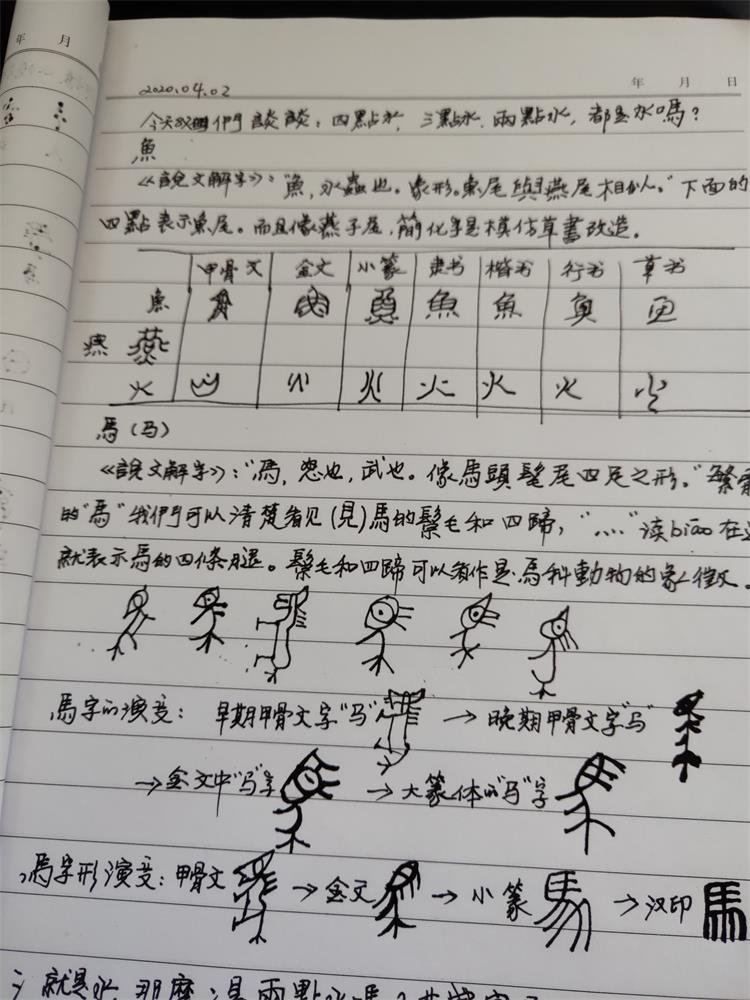 年 月
年 月 日
2020.04.02
今天我們談談:四點水,三點水,兩點水,都是水嗎?
魚
《說文解字》:"魚,水蟲也。象形。魚尾與燕尾相似。"下面的
四點表示魚尾。而且像燕子尾,簡化字是模仿草書改造。
甲骨文 金文 小篆 隶书 楷书 行书 草书
魚 魚 魚 魚
燕
火 火 火 火
馬(马)
《說文解字》:"馬,怒也,武也。像馬頭髦尾四足之形。"繁
的"馬"我們可以清楚看见(見)馬的鬃毛和四蹄,"灬"读biāo在
就表示馬的四條腿。鬃毛和四蹄可以看作是馬科動物的象徵。
馬字的演变: 早期甲骨文字"马" → 晚期甲骨文字"马"
→金文中"马"字 → 大篆体的"马"字
馬字形演变:甲骨文 → 金文 → 小篆 → 汉印 馬
氵就是水,那麼冫是兩點水嗎?